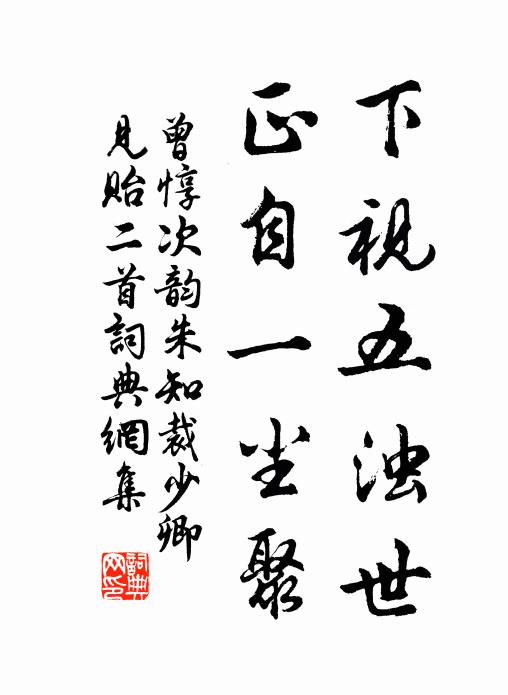 下視五浊世
正自一尘聚
曾惇次韵朱知裁少卿
見贻二首詞典網集
詞典
网印